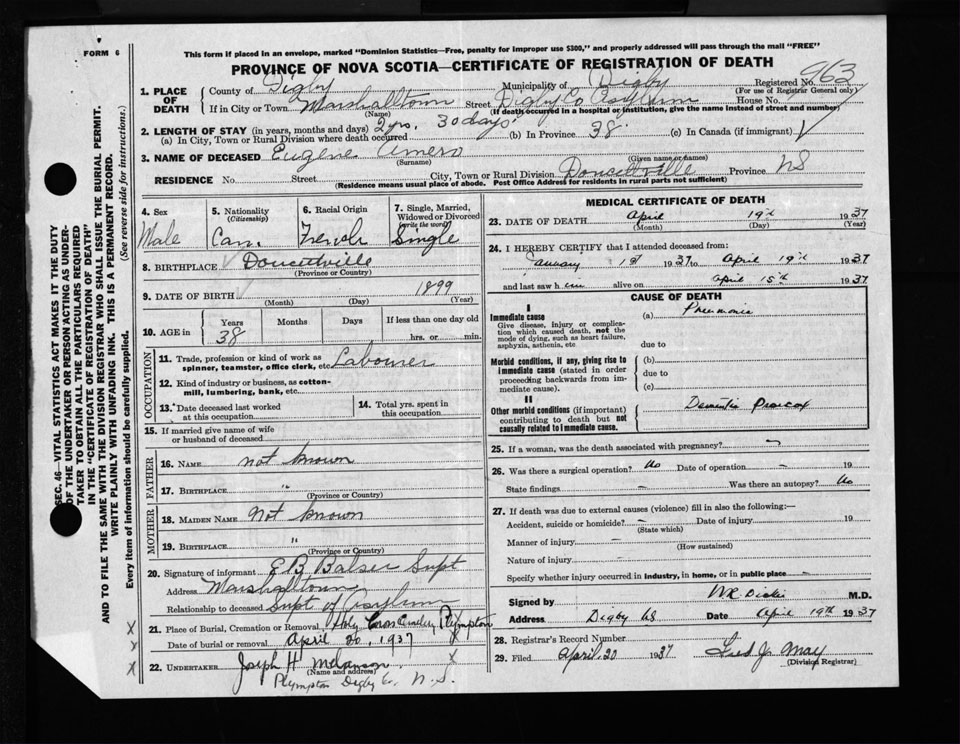 FORM 6
This form if placed in an envelope, marked "Dominion Statistics—Free, penalty for improper use $300," and properly addressed will pass through the mail "FREE"
PROVINCE OF NOVA SCOTIA—CERTIFICATE OF REGISTRATION OF DEATH
SEC. 46—VITAL STATISTICS ACT MAKES IT THE DUTY
OF THE UNDERTAKER OR PERSON ACTING AS UNDER-
TAKER TO OBTAIN ALL THE PARTICULARS REQUIRED
IN THE "CERTIFICATE OF REGISTRATION OF DEATH"
AND TO FILE THE SAME WITH THE DIVISION REGISTRAR WHO SHALL ISSUE THE BURIAL PERMIT.
WRITE PLAINLY WITH UNFADING INK. THIS IS A PERMANENT RECORD.
Every item of information should be carefully supplied. (See reverse side for instructions.)
1. PLACE OF DEATH
County of Digby Municipality of Digby Registered No. 963
(For use of Registrar General only)
If in City or Town Marshalltown Street Digby Co Asylum House No.
(Name) (If death occurred in a hospital or institution, give the name instead of street and number)
2. LENGTH OF STAY (in years, months and days) 2 yrs, 30 days
(a) In City, Town or Rural Division where death occurred (b) In Province 38 (c) In Canada (if immigrant)
3. NAME OF DECEASED Eugene Amero
(Surname) (Given name or names)
RESIDENCE No. Street City, Town or Rural Division Doucettville Province NS
(Residence means usual place of abode. Post Office Address for residents in rural parts not sufficient)
4. Sex
Male
5. Nationality
(Citizenship)
Can.
6. Racial Origin
French
7. Single, Married, Widowed or Divorced
(write the word)
Single
8. BIRTHPLACE Doucettville
(Province or Country)
9. DATE OF BIRTH 1899
(Month) (Day) (Year)
10. AGE in Years Months Days If less than one day old
38 hrs. or min.
OCCUPATION
11. Trade, profession or kind of work as spinner, teamster, office clerk, etc. Labourer
12. Kind of industry or business, as cotton-mill, lumbering, bank, etc.
13. Date deceased last worked at this occupation
14. Total yrs. spent in this occupation
15. If married give name of wife or husband of deceased
FATHER
16. NAME not known
17. BIRTHPLACE "
(Province or Country)
MOTHER
18. MAIDEN NAME Not known
19. BIRTHPLACE "
(Province or Country)
20. Signature of informant E B Balser Supt
Address Marshalltown
Relationship to deceased Supt of Asylum
21. Place of Burial, Cremation or Removal Holy Cross Cemetery Plympton
Date of burial or removal April 20, 1937
22. UNDERTAKER Joseph H Melanson
(Name and address)
Plympton Digby Co. N.S.
MEDICAL CERTIFICATE OF DEATH
23. DATE OF DEATH April 19th 1937
(Month) (Day) (Year)
24. I HEREBY CERTIFY that I attended deceased from:
January 1st 1937 to April 19th 1937
and last saw him alive on April 15th 1937
CAUSE OF DEATH
I
Immediate cause (a) Pneumonia
Give disease, injury or complication which caused death, not the mode of dying, such as heart failure, asphyxia, asthenia, etc.
due to
Morbid conditions, if any, giving rise to immediate cause (stated in order proceeding backwards from immediate cause).
(b)
due to
(c)
II
Other morbid conditions (if important) contributing to death but not causally related to immediate cause.
Dementia Praecox
25. If a woman, was the death associated with pregnancy? –
26. Was there a surgical operation? No Date of operation – 19
State findings – Was there an autopsy? No
27. If death was due to external causes (violence) fill in also the following:—
Accident, suicide or homicide? – Date of injury 19
(State which)
Manner of injury –
(How sustained)
Nature of injury –
Specify whether injury occurred in industry, in home, or in public place –
Signed by WR Dickie M.D.
Address Digby NS Date April 19th 1937
28. Registrar's Record Number
29. Filed April 20 1937 Fred J. May
(Division Registrar)